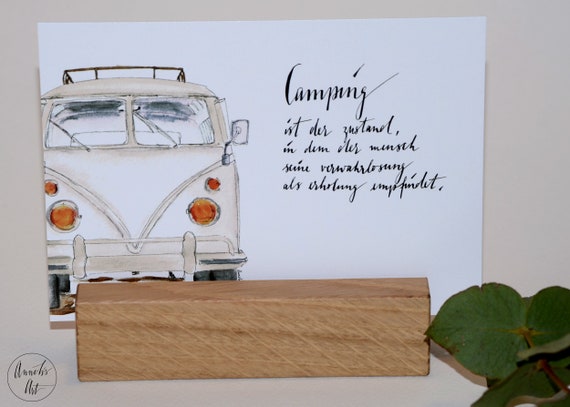 Camping
ist der zustand,
in dem der mensch
seine verwahrlosung
als erholung empfindet.
Annok's
Art